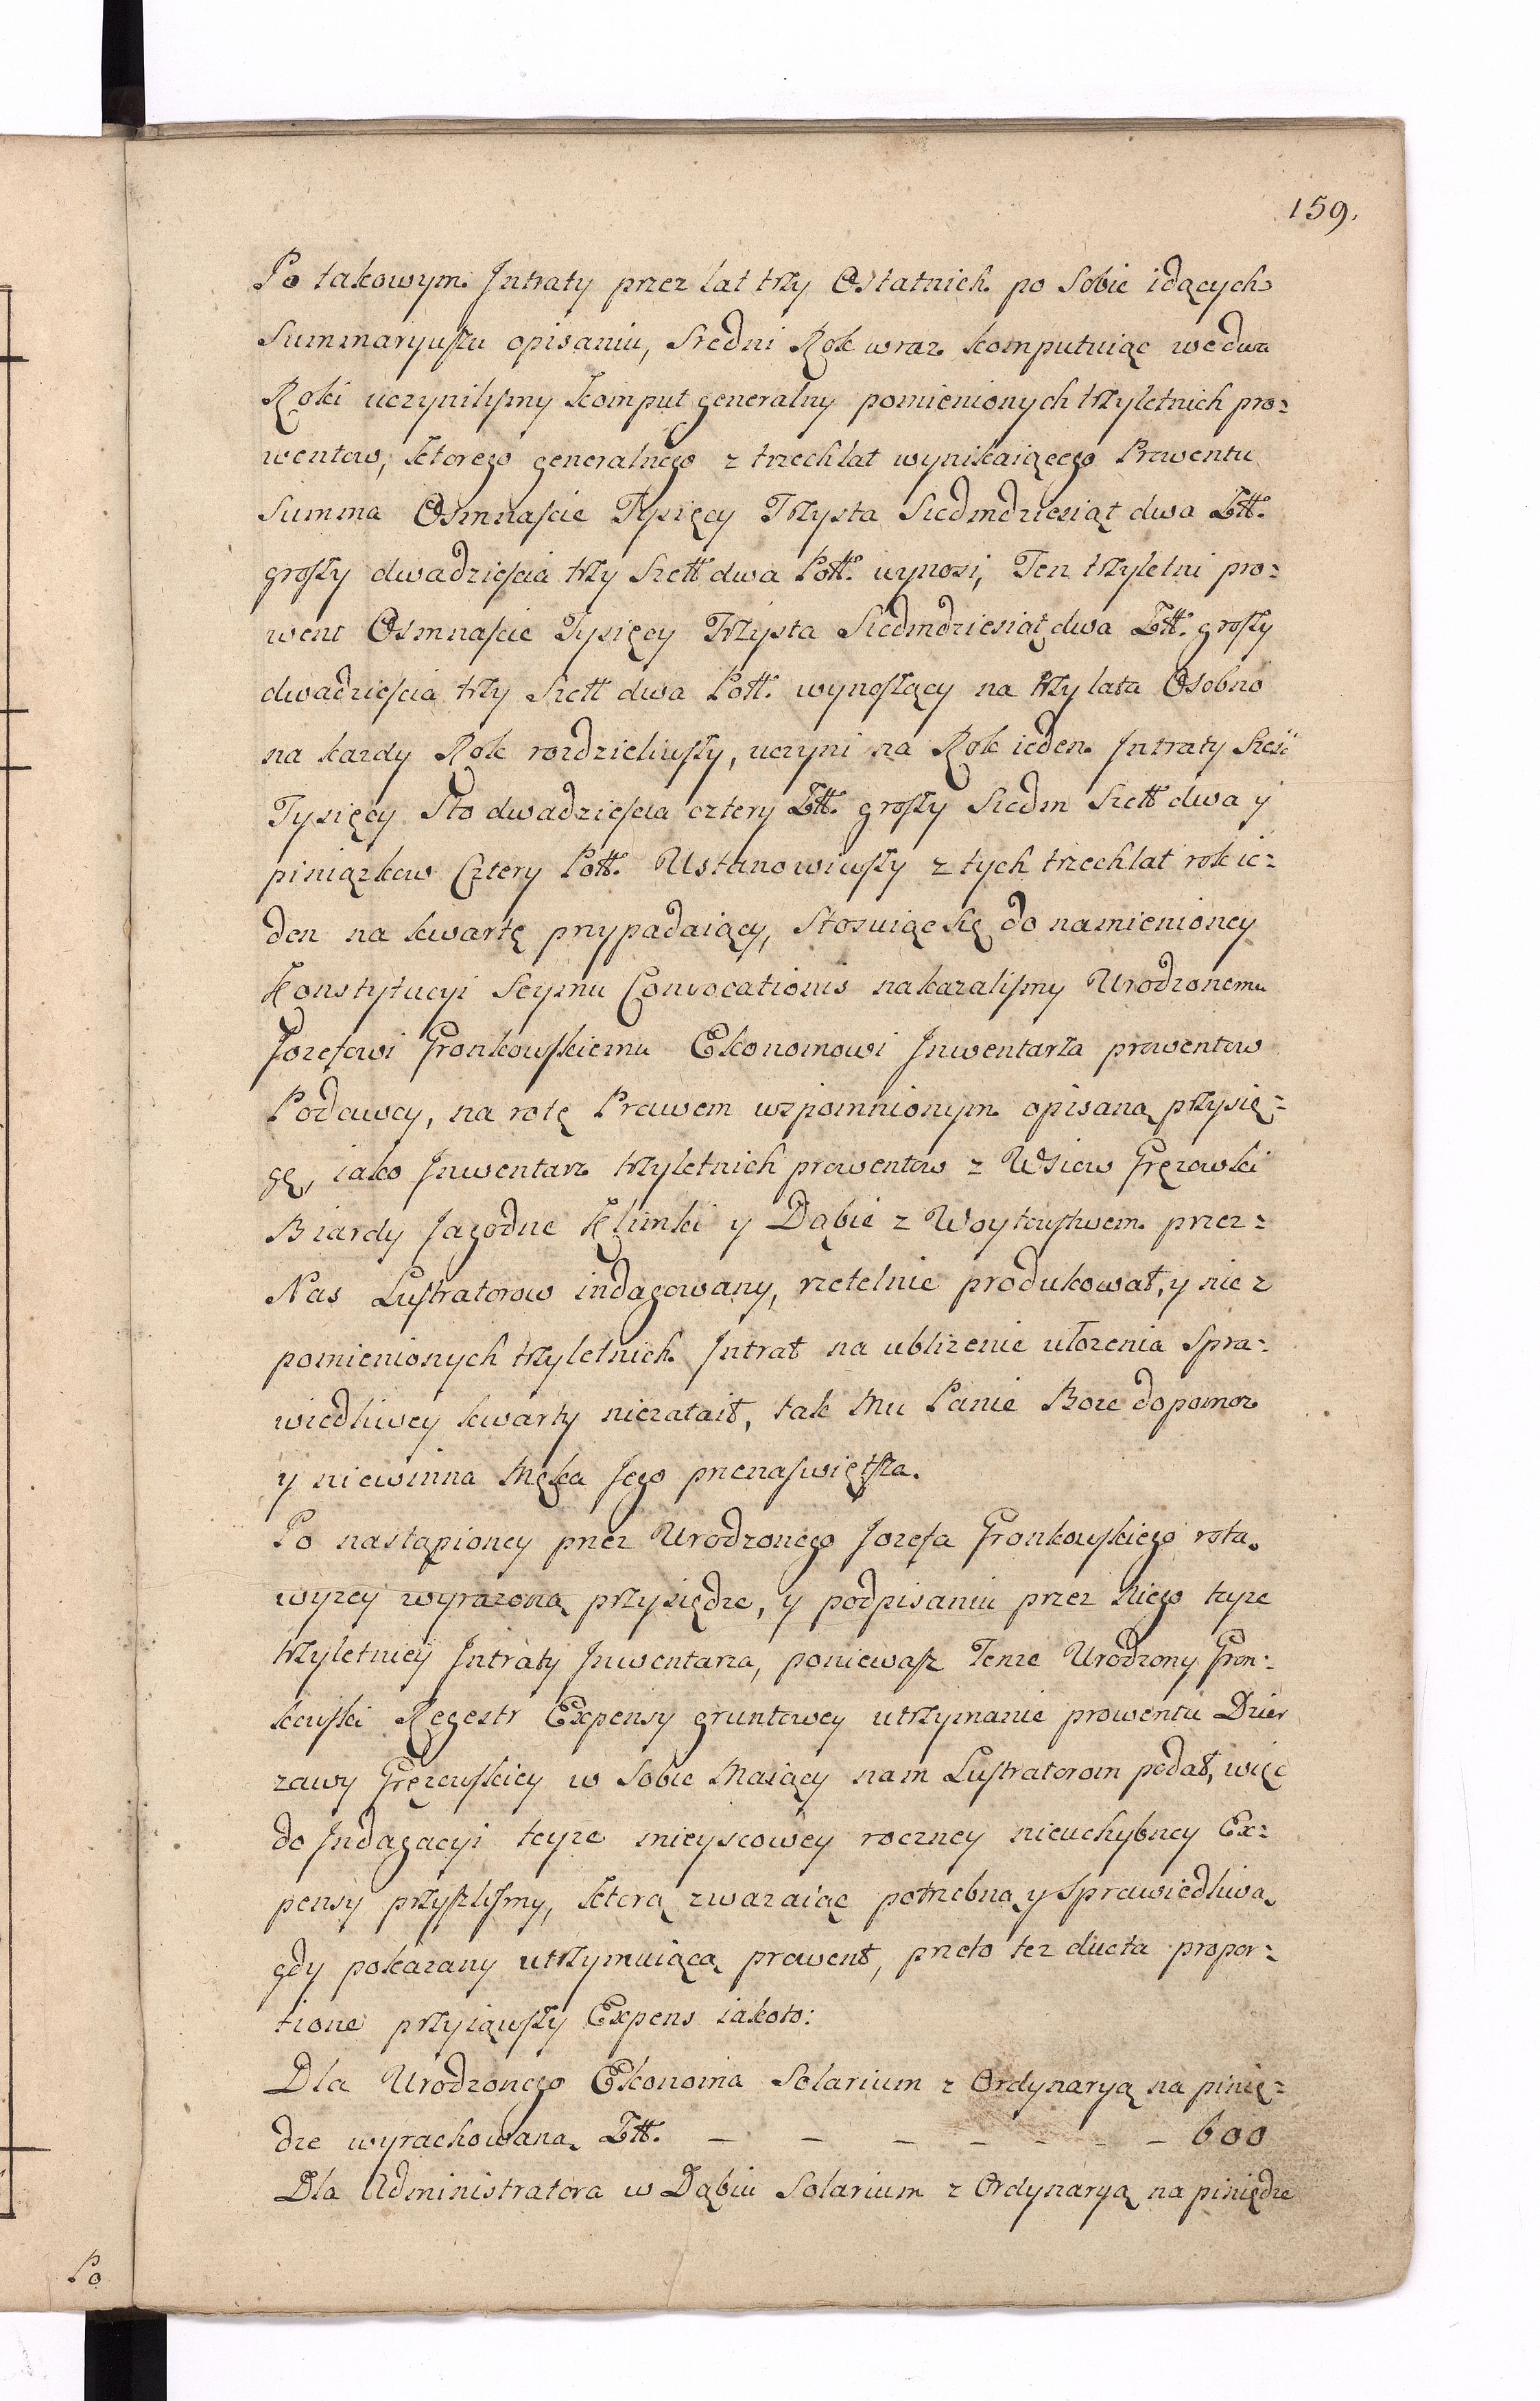 159.
Po takowym Jntraty przez lat trzy Ostatnich po Sobie idących
Summaryuszu opisaniu, Sredni Rok wraz komputuiąc we dwa
Roki uczynilismy komput generalny pomienionych trzyletnich pro=
wentow, ktorego generalnego z trzech lat wynikaiącego Prowentu
Summa Osmnaście Tysięcy Trzysta Siedmdziesiąt dwa Złł.
groszy dwadzieścia trzy Szelł dwa Poll. wynosi, Ten trzyletni pro=
went Osmnaście Tysięcy Trzysta Siedmdziesiąt dwa Złł. groszy
dwadzieścia trzy Szelł dwa Poll. wynoszący na trzy lata Osobno
na kazdy Rok rozdzieliwszy, uczyni na Rok ieden Jntraty Sześć
Tysięcy Sto dwadzieścia cztery Złł. groszy Siedm Szelł dwa y
piniązkow Cztery Poll. Ustanowiwszy z tych trzech lat rok ie=
den na kwartę przypadaiący, Stosuiąc się do namienioney
Konstytucyi Seymu Convocationis nakazalismy Urodzonemu
Jozefowi Gronkowskiemu Ekonomowi Jnwentarza prowentow
Podawcy, na rotę Prawem wzpomnionym opisaną przysię=
gę, iako Jnwentarz trzyletnich prowentow z Wsiow Gręzowki
Biardy Jagodne Klimki y Dąbie z Woytowstwem przez=
Nas Lustratorow indagowany, rzetelnie produkował, y nie z
pomienionych trzyletnich Jntrat na ublizenie ułozenia Spra=
wiedliwey kwarty niezataił, tak Mu Panie Boze dopomoz
y niewinna Męka Jego przenaswiętsza.
Po nastąpioney przez Urodzonego Jozefa Gronkowskiego rotą
wyzey wyrazoną przysiędze, y podpisaniu przez Niego teyze
trzyletniey Jntraty Jnwentarza, poniewasz Tenze Urodzony Gron=
kowski Regestr Expensy gruntowey utrzymanie prowentu Dzier
zawy Gręzowskiey w Sobie Maiący nam Lustratorom podał, więc
do Jndagacyi teyze mieyscowey roczney nieuchybney Ex=
pensy przyszlismy, ktorą zwazaiąc potrzebną y sprawiedliwą
gdy pokazany utrzymuiącą prowent, przeto tez ducta propor=
tione przyiąwszy Expens iakoto:
Dla Urodzonego Ekonoma Solarium z Ordynaryą na pinię=
dze wyrachowaną Złł. – – – – – – – 600
Dla Administratora w Dąbiu Solarium z Ordynaryą na piniędze
Po